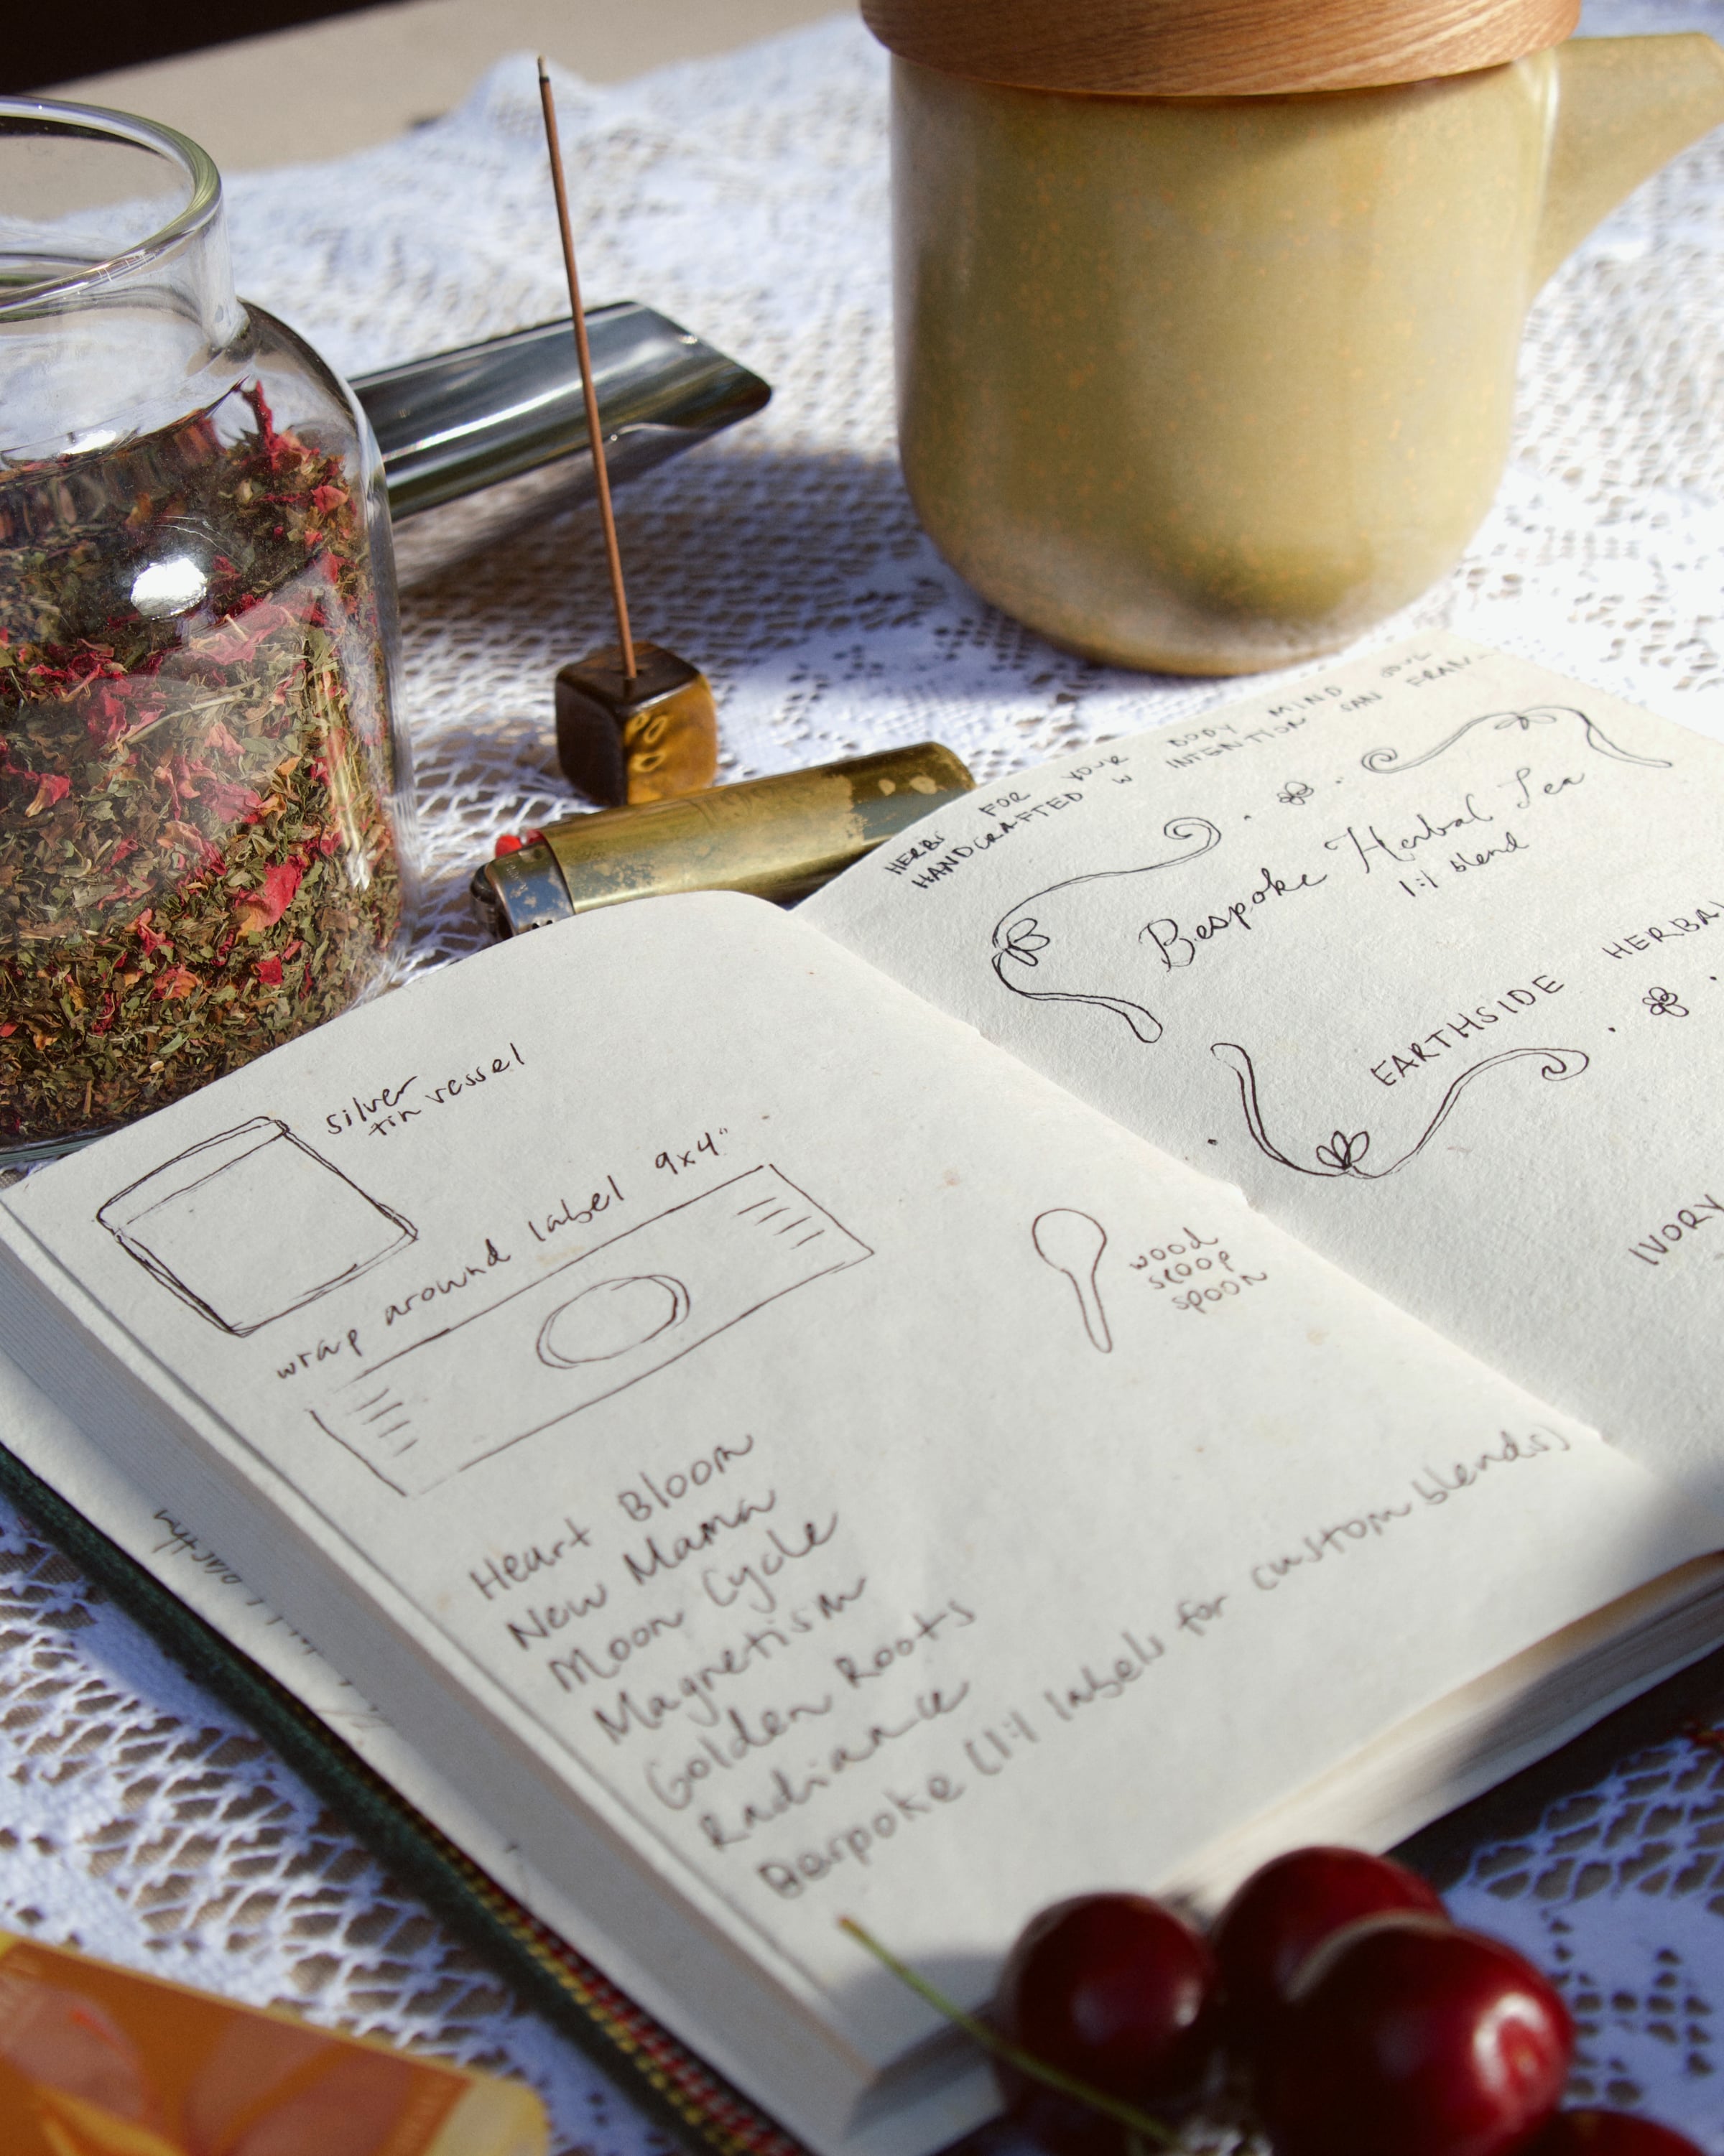 silver
tin vessel
wrap around label 9x4"
wood
scoop
spoon
Heart Bloom
New Mama
Moon Cycle
Magnetism
Golden Roots
Radiance
Bespoke (1:1 labels for custom blends)
HERBS FOR YOUR BODY MIND SOUL
HANDCRAFTED W INTENTION SAN FRAN-
Bespoke Herbal Tea
1:1 blend
EARTHSIDE HERBAL
IVORY